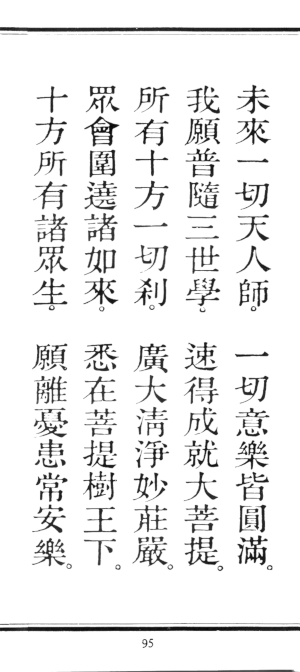 未來一切天人師。一切意樂皆圓滿。
我願普隨三世學。速得成就大菩提。
所有十方一切剎。廣大清淨妙莊嚴。
眾會圍遶諸如來。悉在菩提樹王下。
十方所有諸眾生。願離憂患常安樂。
95